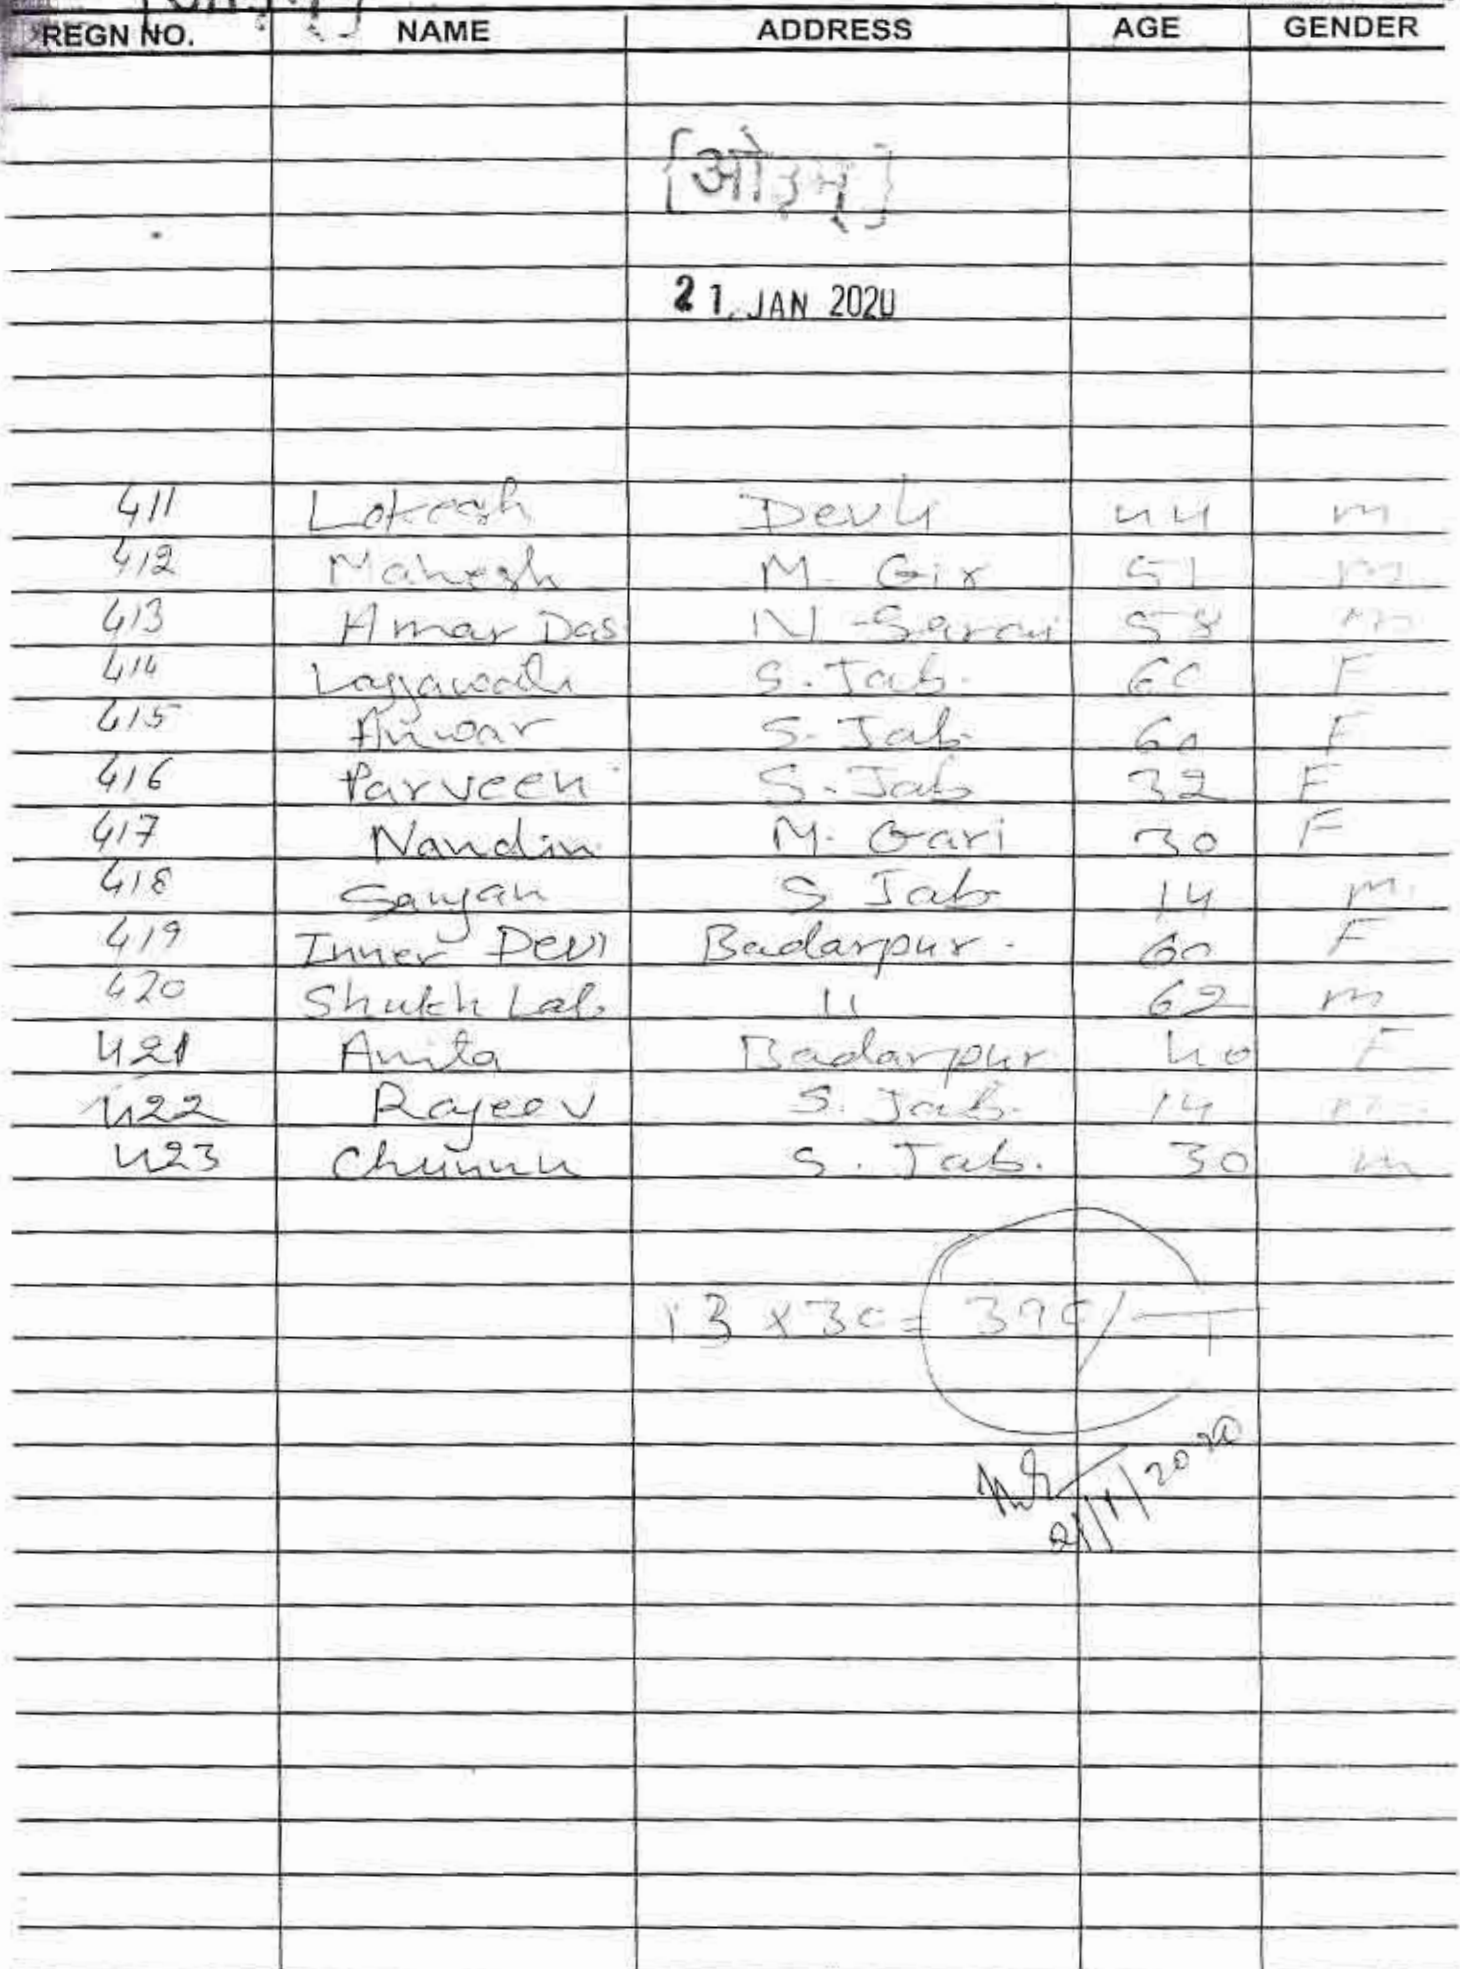 REGN NO. NAME ADDRESS AGE GENDER
{ओ३म्}
21 JAN 2020
411 Lokeash Devli 44 m
412 Mahesh M. Gir 51 m
413 Amar Das N-Sarai 58 m
414 S. Jab. 60 F
415 Anwar S. Jab. 60 F
416 Parveen S. Jab 32 F
417 Nandin M. Gari 30 F
418 S Jab 14 m.
419 Inner Devi Badarpur. 60 F
420 Shukh Lal 11 62 m
421 Anita Badarpur 40 F
422 Rajeev S. Jab. 14 m
423 Chunnu S. Jab. 30 m
13 x 30 = 390/-
21/1/2020